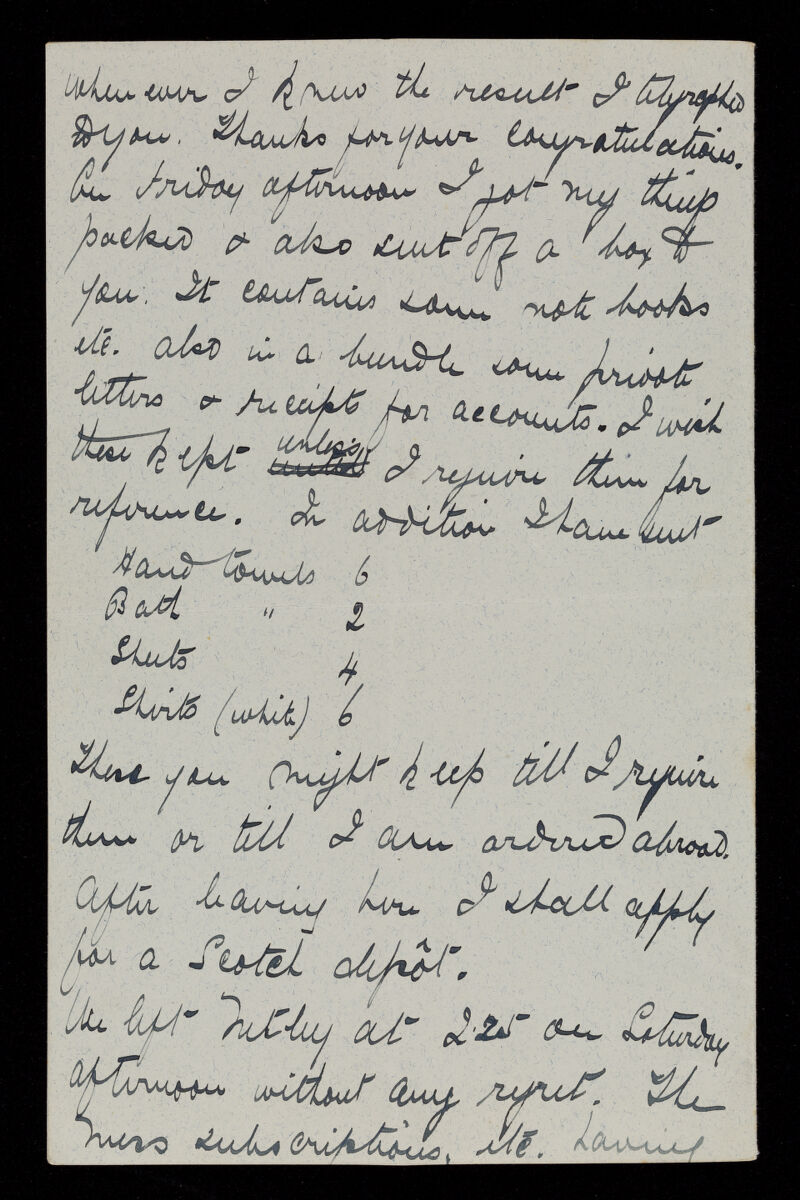 whenever I knew the result I telegraphed
to you. Thanks for your congratulations.
On Friday afternoon I got my things
packed & also sent off a box to
you. It contains some note books
etc. also in a bundle some private
letters & receipts for accounts. I wish
these kept unless I require them for
reference. In addition I have sent
Hand towels 6
Bath " 2
Sheets 4
Shirts (white) 6
These you might keep till I require
them or till I am ordered abroad.
After leaving here I shall apply
for a Scotch depôt.
We left Netley at 2.25 on Saturday
afternoon without any regret. The
Mess subscriptions, etc. having